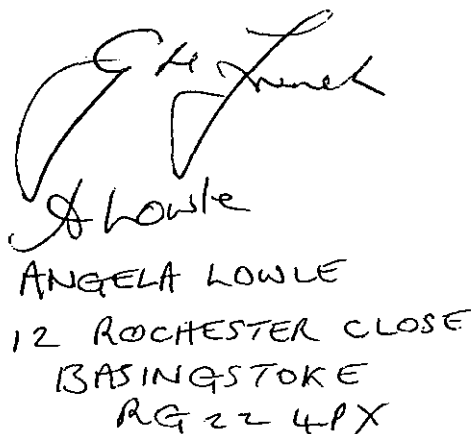 G H French
A Lowle
ANGELA LOWLE
12 ROCHESTER CLOSE
BASINGSTOKE
RG22 4PX